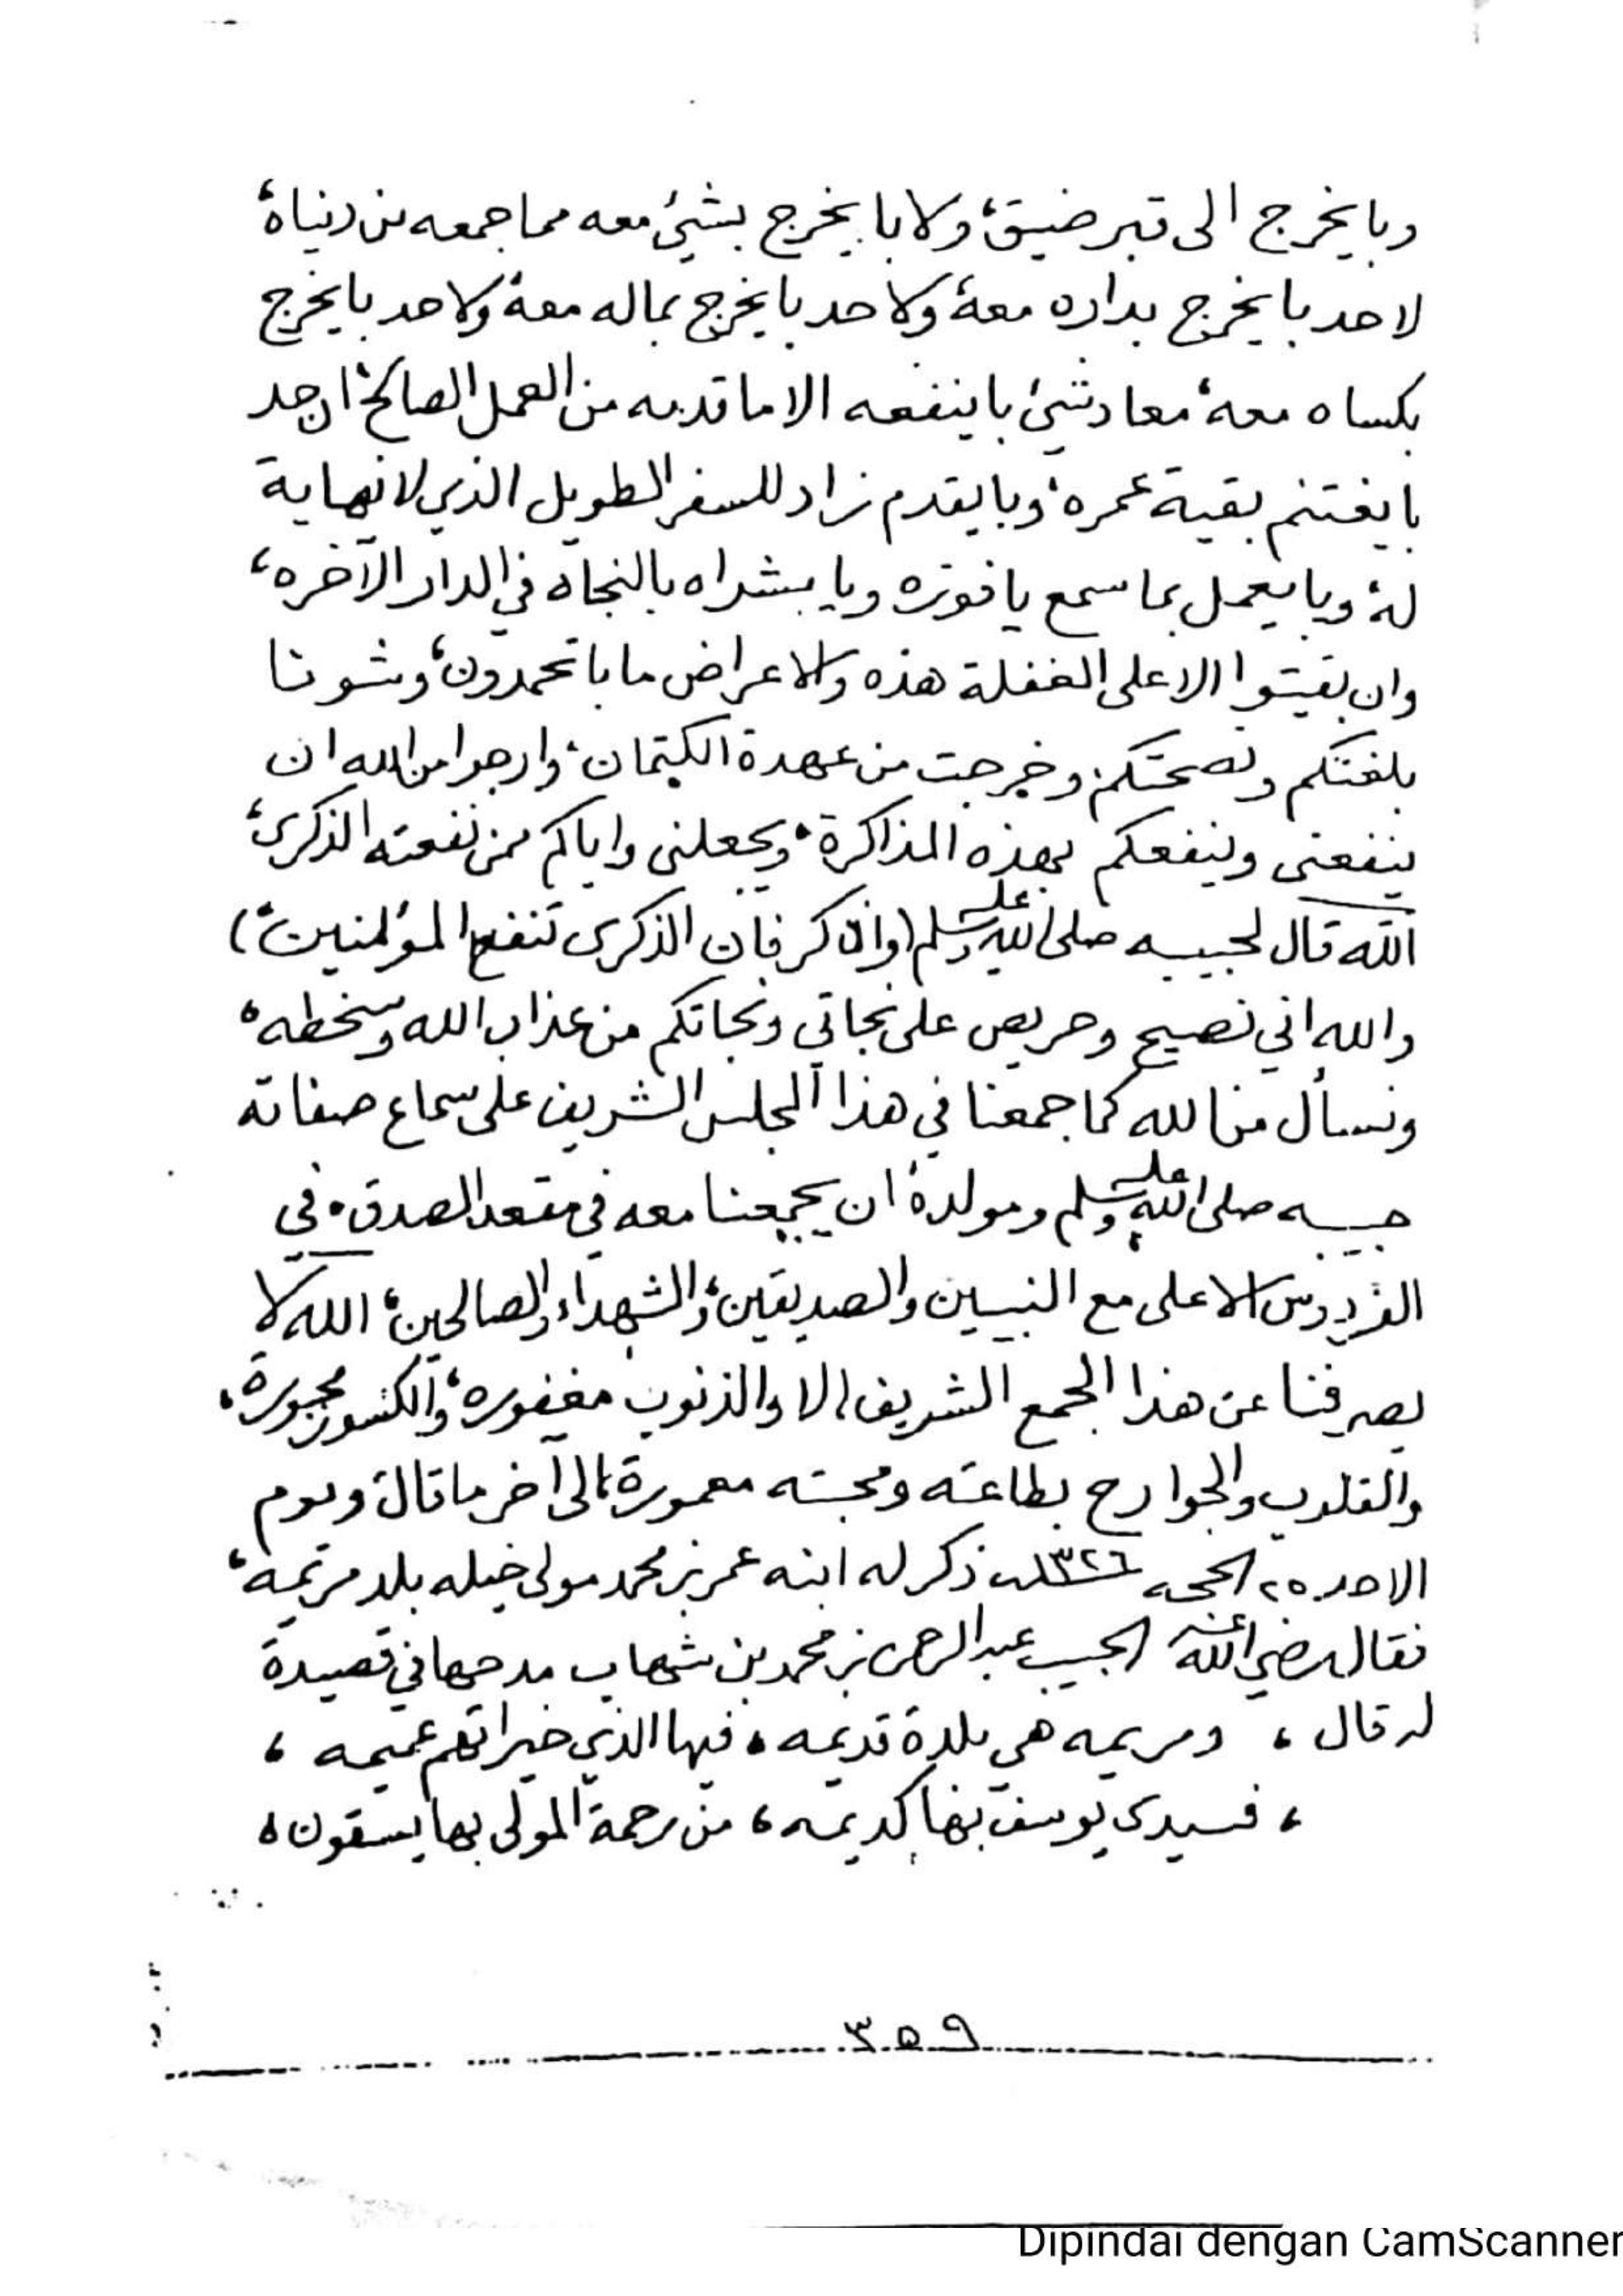 وبا يخرج الى قبر ضيق، ولا با يخرج بشيئ معه مما جمعه من دنياه،
لاحد با يخرج بداره معه، ولاحد با يخرج بماله معه، ولاحد با يخرج
بكساه معه، معاد شيئ با ينفعه الا ما قدمه من العمل الصالح،
با يغتنم بقية عمره، وبا يقدم زاد للسفر الطويل الذي لا نهاية
له، وبا يعمل بما سمع يا فوزه ويا بشراه بالنجاه في الدار الآخره،
وان بقيتوا الا على الغفلة هذه والاعراض ما با تحمدون، وشونا
بلغتكم ونصحتكم، وخرجت من عهدة الكتمان، وارجوا من الله ان
ينفعنى وينفعكم بهذه المذاكرة، ويجعلنى واياكم ممن نفعته الذكرى،
الله قال لحبيبه صلى الله عليه وسلم (وذكر فان الذكرى تنفع المؤمنين)
والله اني نصيح وحريص على نجاتي ونجاتكم من عذاب الله وسخطه،
ونسأل من الله كما جمعنا في هذا المجلس الشريف على سماع صفاته
حبيبه صلى الله عليه وسلم ومولده، ان يجمعنا معه في مقعد الصدق، في
الفردوس الاعلى مع النبيين والصديقين، والشهداء والصالحين، الله لا
يصرفنا عن هذا الجمع الشريف، الا والذنوب مغفوره، والكسور مجبورة،
والقلوب والجوارح بطاعته ومحبته معمورة، الى آخر ما قال، ويوم
الاحد ٢٥ الحجه ١٣٢٦ ذكر له ابنه عمر بن محمد مولى خيله بلد مريمه،
فقال رضي الله عنه الحبيب عبدالرحمن بن محمد بن شهاب مدحها في قصيدة
له قال، ومريمه هي بلدة قديمه، فيها الذي خيراتهم عميمه،
، فسيدى يوسف بها كديمه، من رحمة المولى بها يسقون،
٣٥٩
Dipindai dengan CamScanner